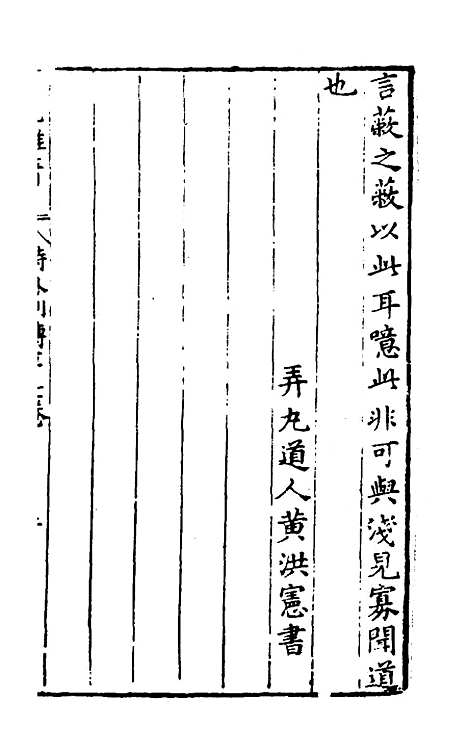 言蔽之蔽以此耳噫此非可與淺見寡聞道
也
弄丸道人黄洪憲書